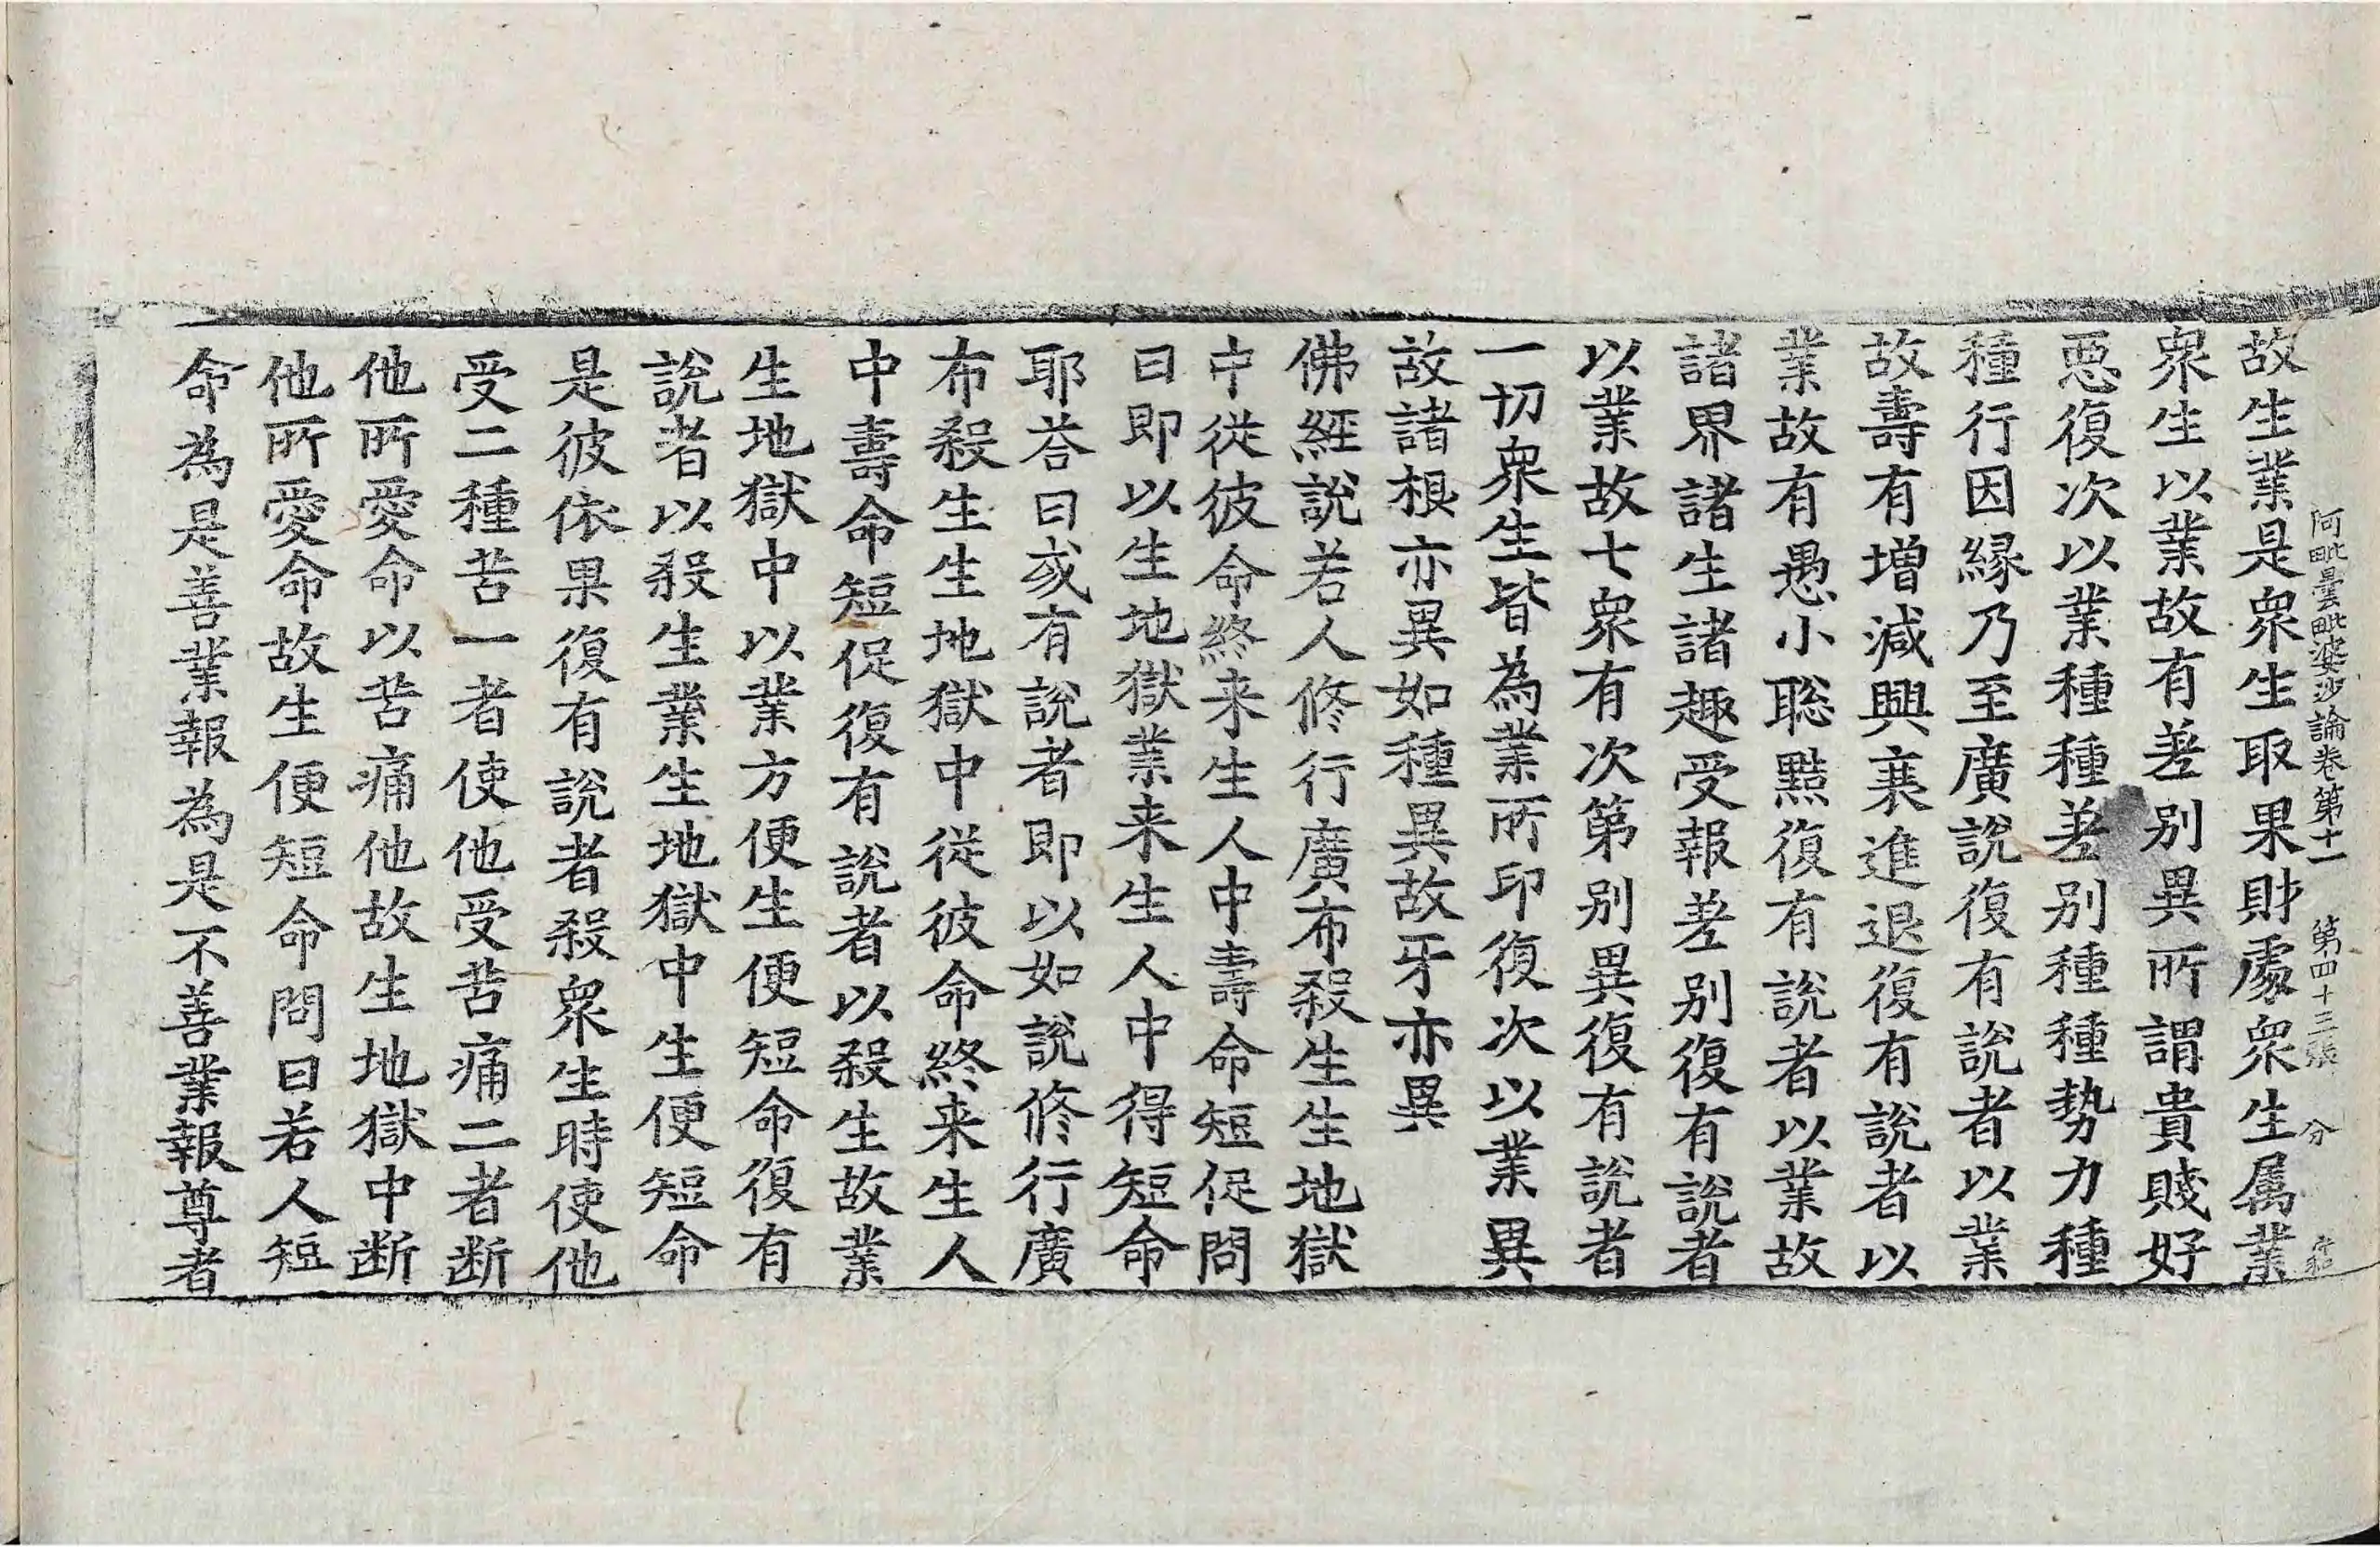 阿毗曇毗婆沙論卷第十一 第四十三張 分
故生業是衆生取果財處衆生属業
衆生以業故有差別異所謂貴賤好
惡復次以業種種差別種種勢力種
種行因縁乃至廣說復有說者以業
故壽有增減興衰進退復有說者以
業故有愚小聡黠復有說者以業故
諸界諸生諸趣受報差別復有說者
以業故七衆有次第別異復有說者
一切衆生皆為業所印復次以業異
故諸根亦異如種異故牙亦異
佛經說若人修行廣布殺生生地獄
中從彼命終来生人中壽命短促問
曰即以生地獄業来生人中得短命
耶荅曰或有說者即以如說修行廣
布殺生生地獄中從彼命終来生人
中壽命短促復有說者以殺生故業
生地獄中以業方便生便短命復有
說者以殺生業生地獄中生便短命
是彼依果復有說者殺衆生時使他
受二種苦一者使他受苦痛二者断
他所愛命以苦痛他故生地獄中断
他所愛命故生便短命問曰若人短
命為是善業報為是不善業報尊者